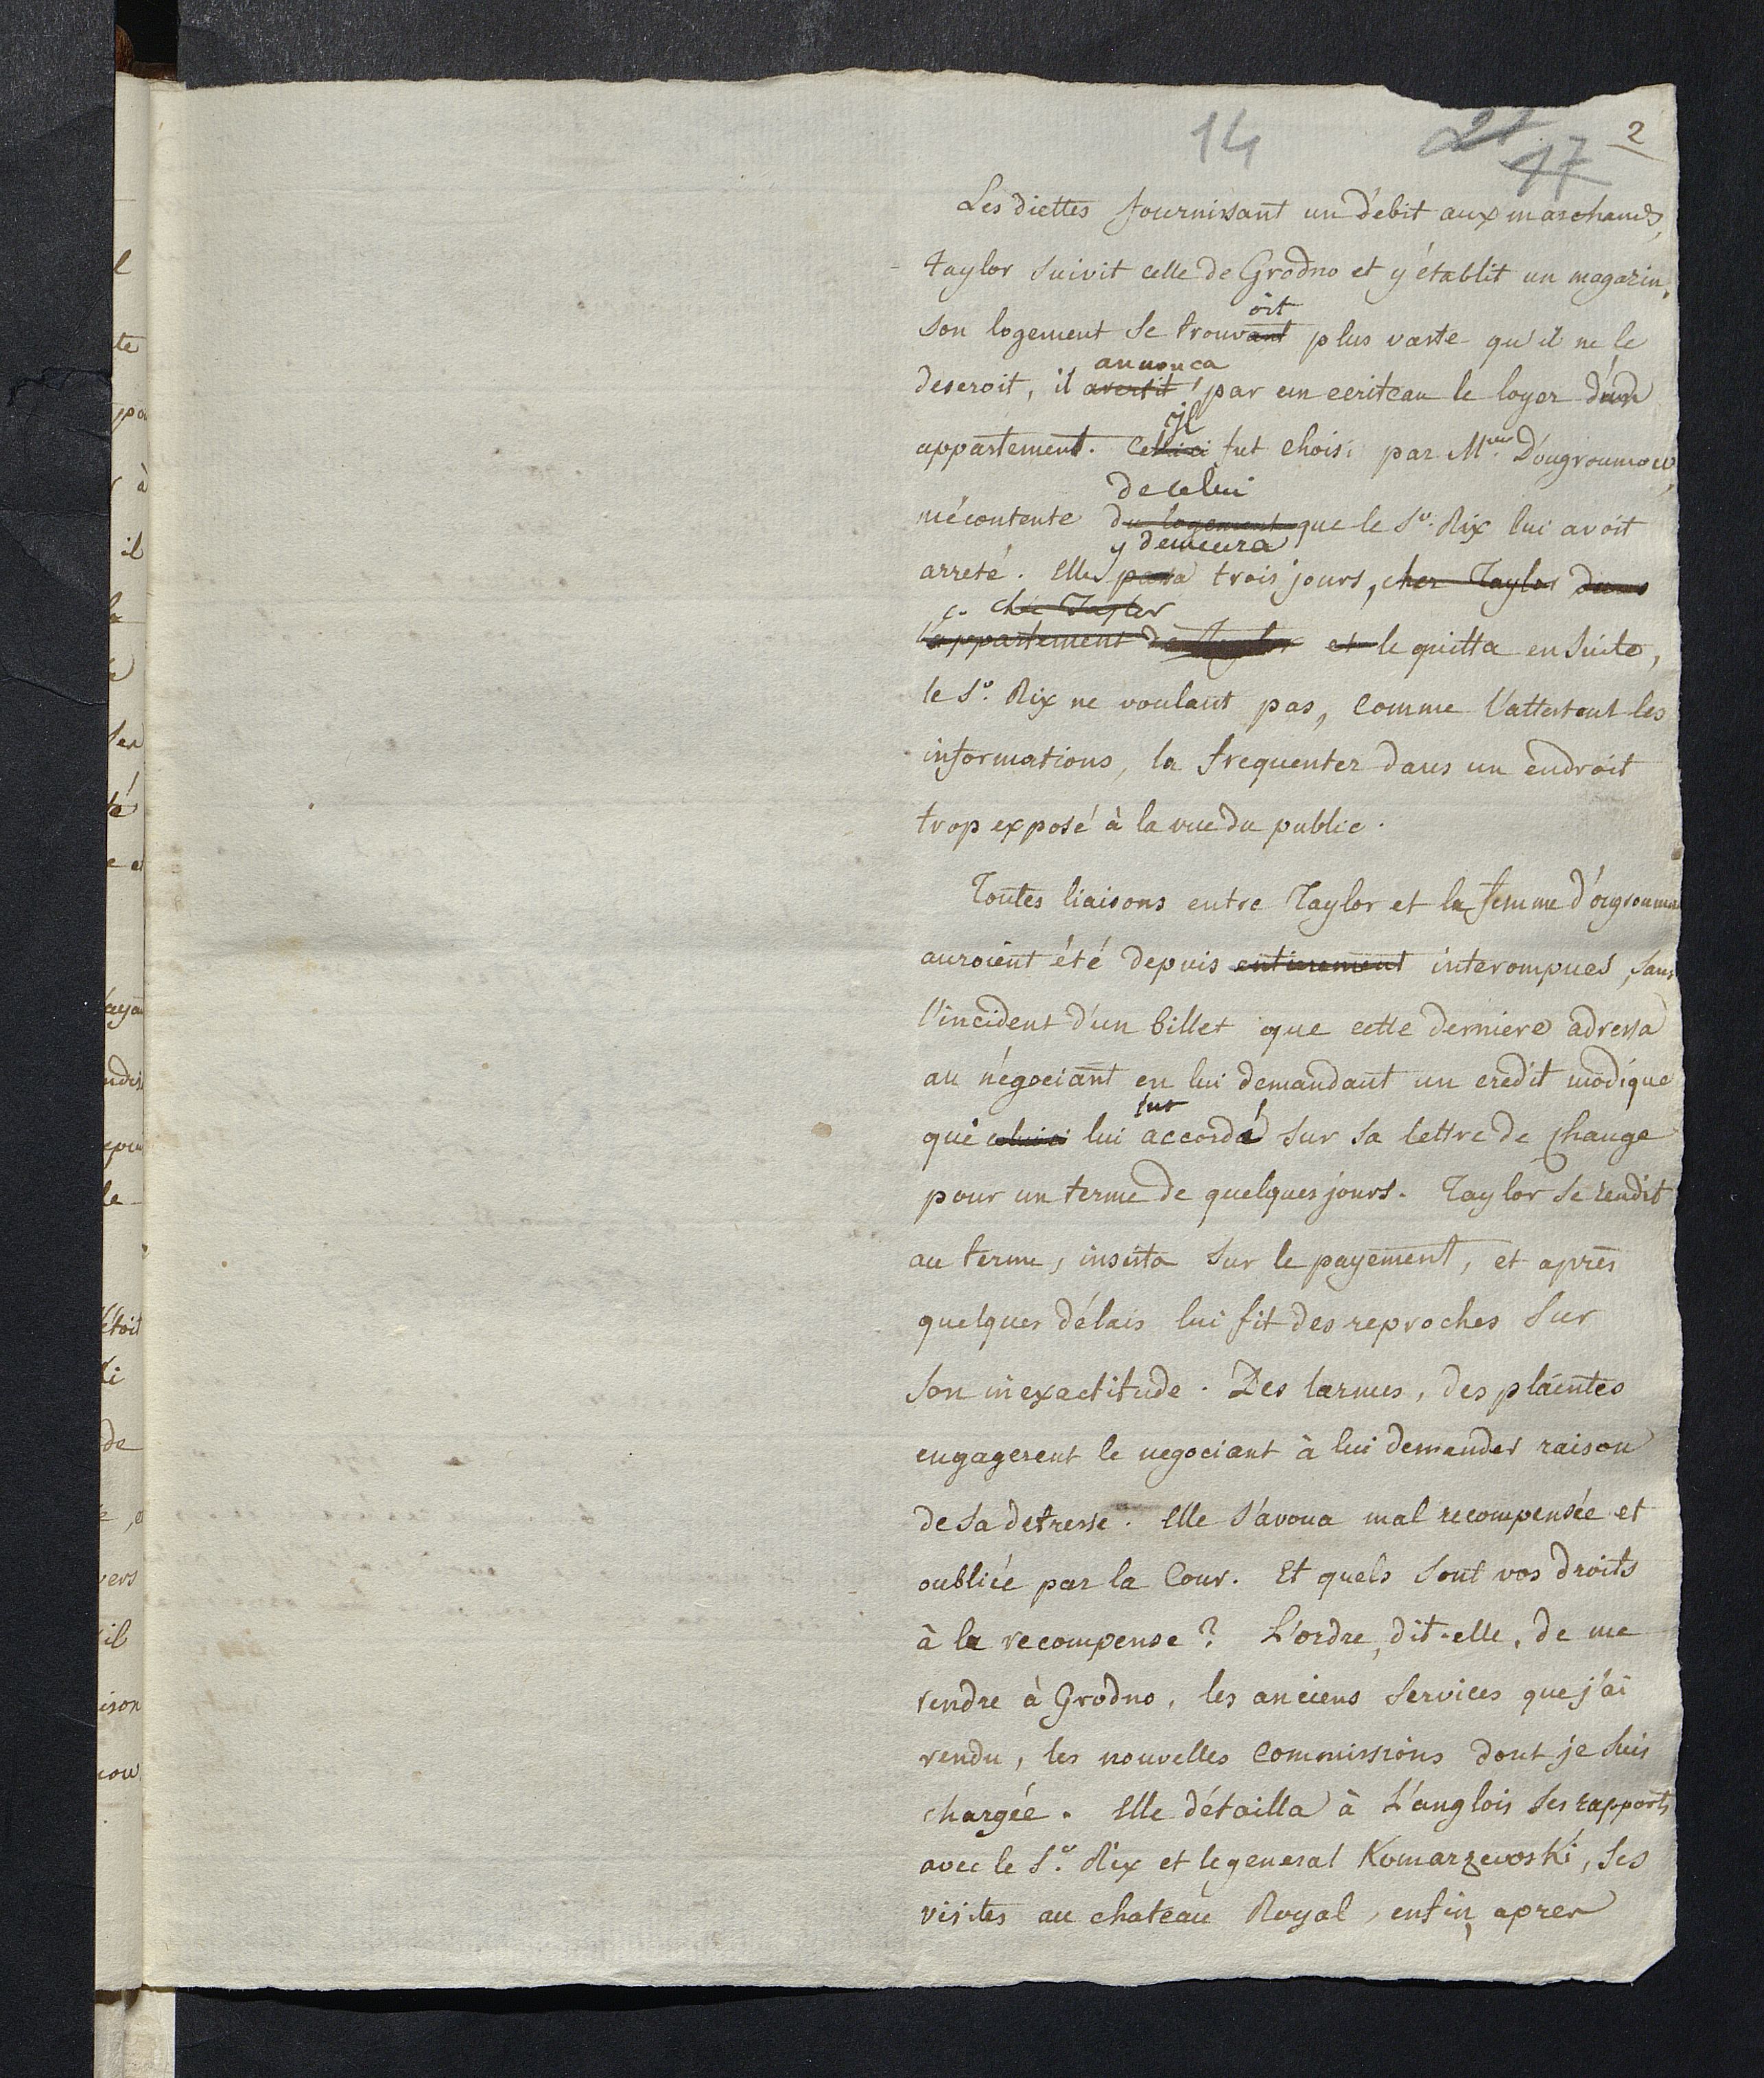 14 21 17 2
Les diettes fournissant un débit aux marchands,
Taylor suivit celle de Grodno et y établit un magazin.
oit
son logement se trouvant plus vaste qu'il ne le
annonca
deseroit, il avertit par un ecriteau le loyer d'un
il
appartement. Celui ci fut choisi par Mme D'ougroumow,
de celui
mécontente du logement que le Sr. Rix lui avoit
y demeura
arreté. Elle passa trois jours, chez Taylor dans
chez Taylor
l'appartement de Taylor et le quitta ensuite,
le Sr. Rix ne voulant pas, comme l'attestent les
informations, la frequenter dans un endroit
trop exposé à la vue du public.
Toutes liaisons entre Taylor et la femme d'ougroumow
auroient été depuis entierement interompues, sans
l'incident d'un billet que cette derniere adressa
au négociant en lui demandant un credit modique
fut
que celui ci lui accordé sur sa lettre de change
pour un terme de quelques jours. Taylor se rendit
au terme, insista sur le payement, et aprés
quelques délais lui fit des reproches sur
son inexactitude. Des larmes, des plaintes
engagerent le negociant à lui demander raison
de sa detresse. Elle s'avoua mal recompensée et
oubliée par la Cour. Et quels sont vos droits
à la recompense? L'ordre, dit-elle, de me
rendre à Grodno, les anciens services que j'ai
rendu, les nouvelles commissions dont je suis
chargée. Elle détailla à L'anglois ses rapports
avec le Sr. Rix et le general Komarzewski, ses
visites au chateau Royal, enfin, apres